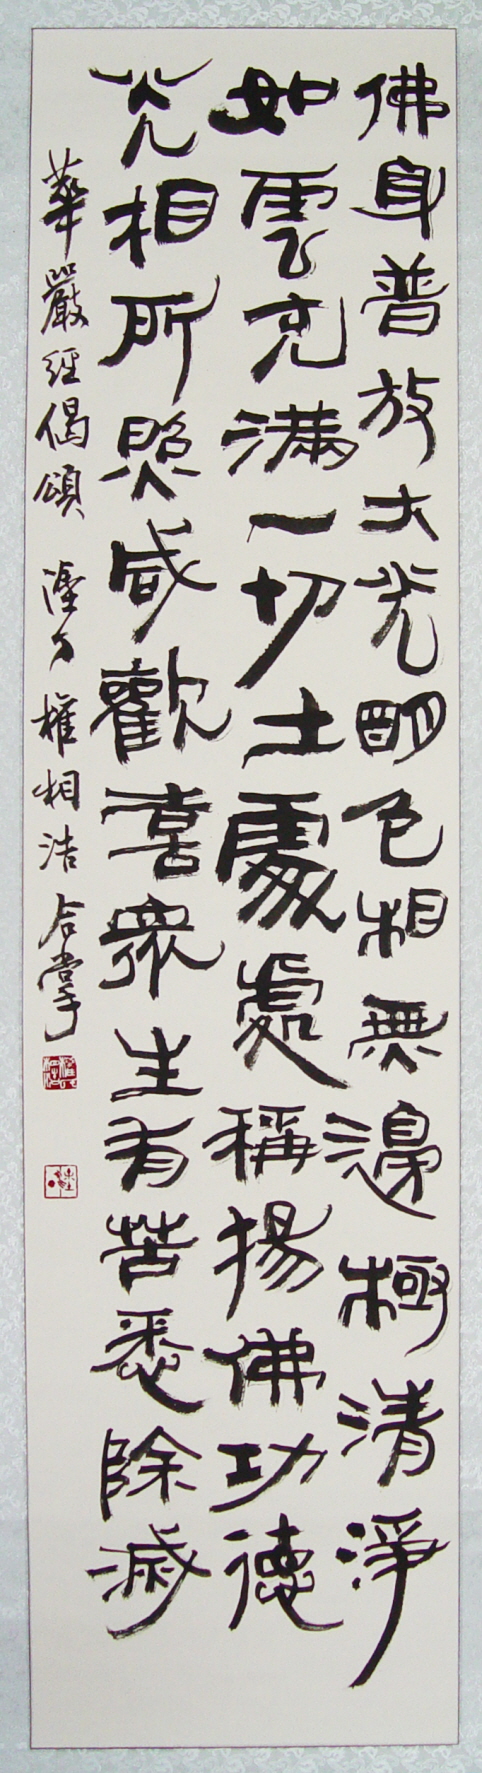 佛身普放大光明色相無邊極清淨
如雲充滿一切土處處稱揚佛功德
光相所照咸歡喜眾生有苦悉除滅
華嚴經偈頌 權相浩合掌